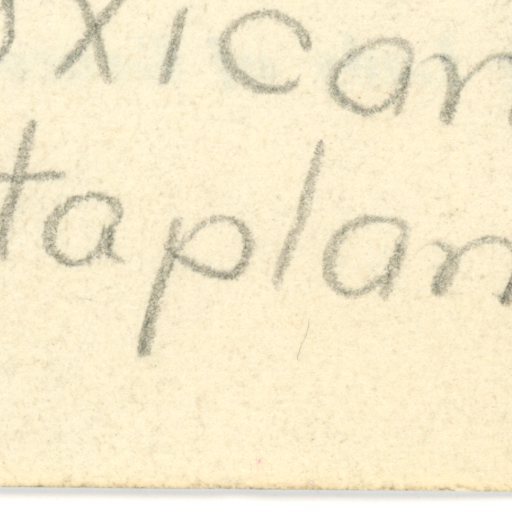 oxican
taplan